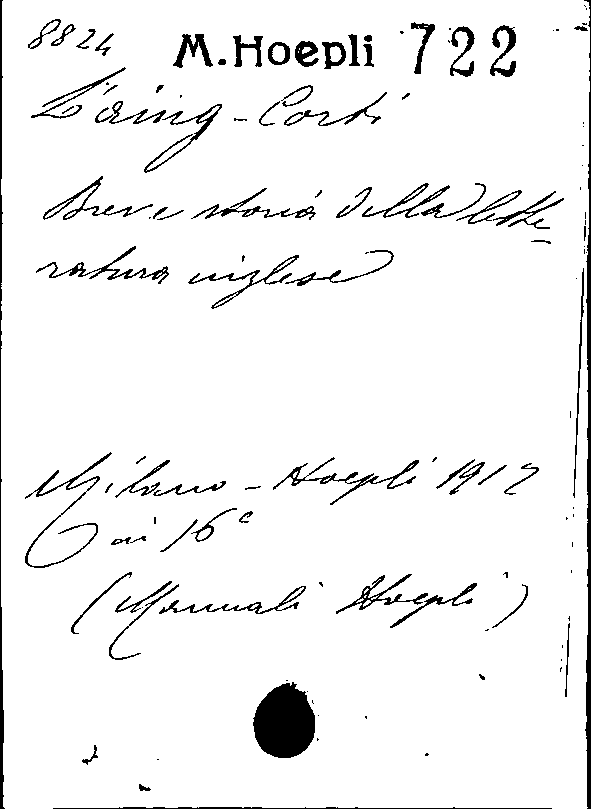 8824 M. Hoepli 722
Laing-Corti
Breve storia della lette-
ratura inglese
Milano - Hoepli 1917
in 16º
(Manuali Hoepli)